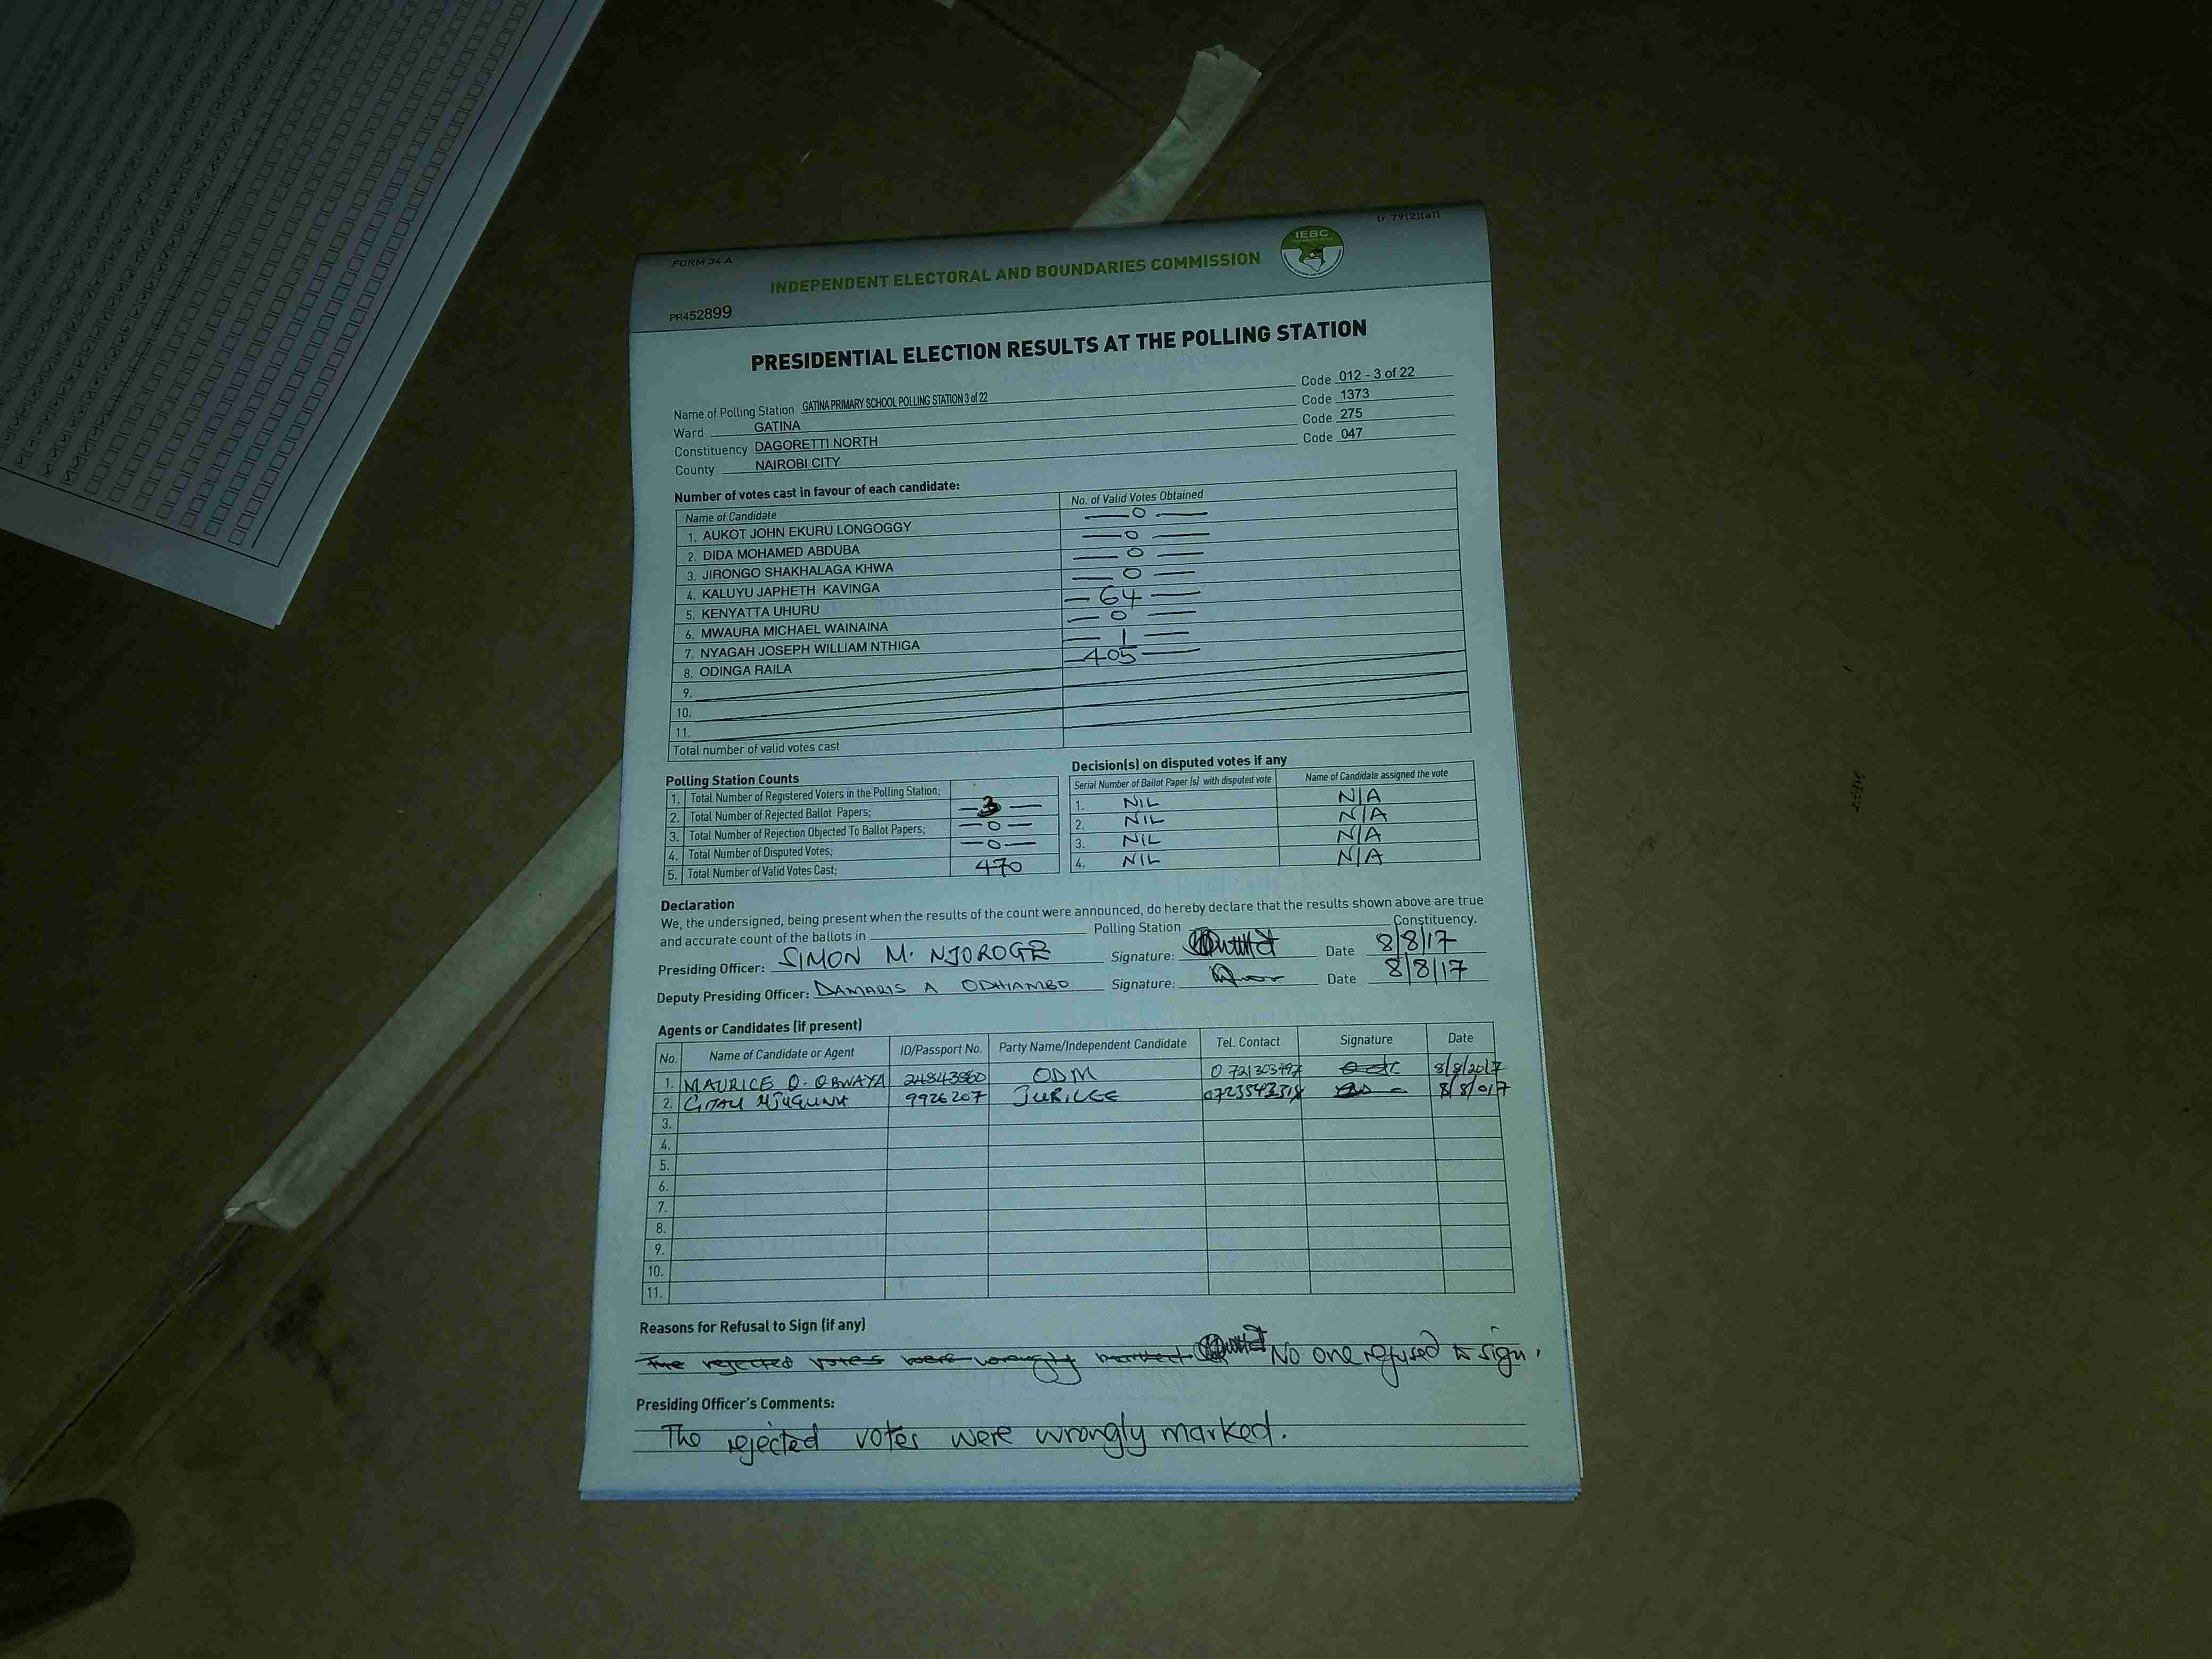 FORM 34 A
(r. 79(2)(a))
INDEPENDENT ELECTORAL AND BOUNDARIES COMMISSION
IEBC
PR452899
PRESIDENTIAL ELECTION RESULTS AT THE POLLING STATION
Name of Polling Station GATINA PRIMARY SCHOOL POLLING STATION 3 of 22 Code 012 - 3 of 22
Ward GATINA Code 1373
Constituency DAGORETTI NORTH Code 275
County NAIROBI CITY Code 047
Number of votes cast in favour of each candidate:
Name of Candidate No. of Valid Votes Obtained
1. AUKOT JOHN EKURU LONGOGGY — 0 —
2. DIDA MOHAMED ABDUBA — 0 —
3. JIRONGO SHAKHALAGA KHWA — 0 —
4. KALUYU JAPHETH KAVINGA — 0 —
5. KENYATTA UHURU — 64 —
6. MWAURA MICHAEL WAINAINA — 0 —
7. NYAGAH JOSEPH WILLIAM NTHIGA — 1 —
8. ODINGA RAILA — 405 —
9.
10.
11.
Total number of valid votes cast
Polling Station Counts
1. Total Number of Registered Voters in the Polling Station;
2. Total Number of Rejected Ballot Papers; — 3 —
3. Total Number of Rejection Objected To Ballot Papers; — 0 —
4. Total Number of Disputed Votes; — 0 —
5. Total Number of Valid Votes Cast; 470
Decision(s) on disputed votes if any
Serial Number of Ballot Paper (s) with disputed vote Name of Candidate assigned the vote
1. NIL N/A
2. NIL N/A
3. NIL N/A
4. NIL N/A
Declaration
We, the undersigned, being present when the results of the count were announced, do hereby declare that the results shown above are true
and accurate count of the ballots in Polling Station Constituency.
Presiding Officer: SIMON M. NJOROGE Signature: Date 8/8/17
Deputy Presiding Officer: DAMARIS A ODHIAMBO Signature: Date 8/8/17
Agents or Candidates (if present)
No. Name of Candidate or Agent ID/Passport No. Party Name/Independent Candidate Tel. Contact Signature Date
1. MAURICE O. OBWAYA 24843860 ODM 0721303497 8/8/2017
2. GITAU NJUGUNA 9926207 JUBILEE 8/8/017
3.
4.
5.
6.
7.
8.
9.
10.
11.
Reasons for Refusal to Sign (if any)
The rejected votes were wrongly marked No one refused to sign.
Presiding Officer's Comments:
The rejected votes were wrongly marked.